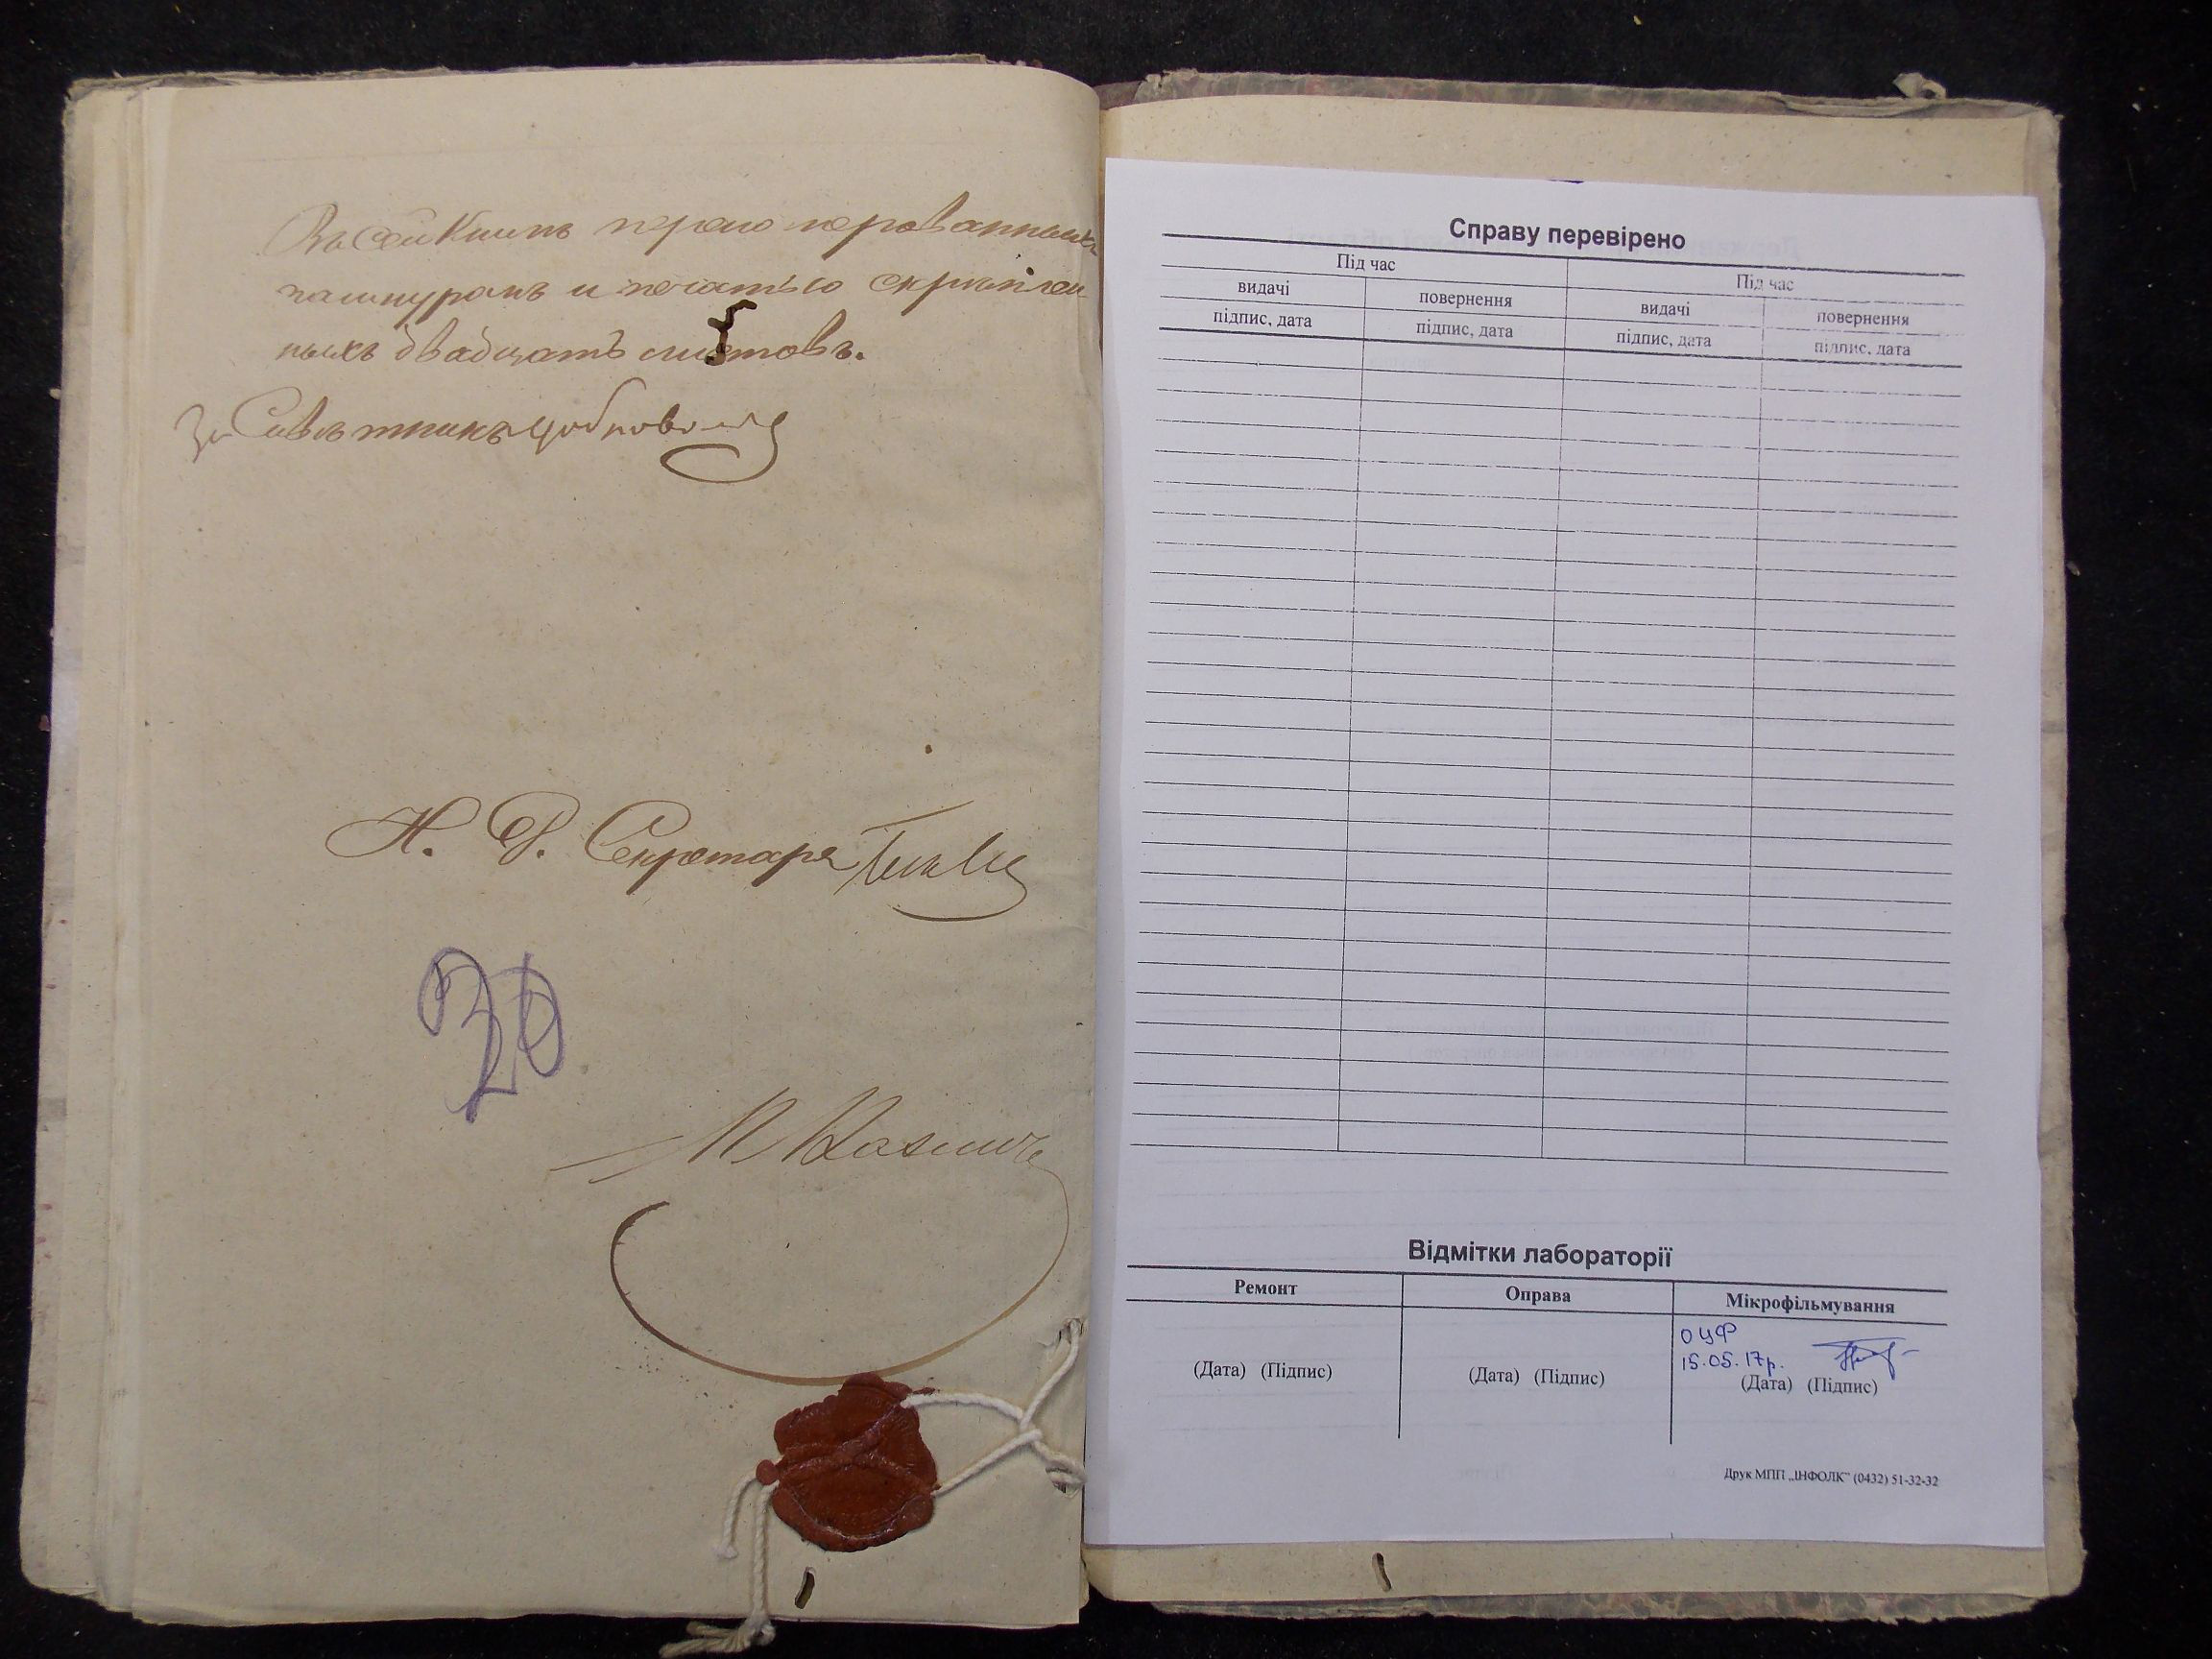 Въ сей Книгѣ перенумерованныхъ
шнуромъ и печатью скрѣплен
ныхъ двадцать листовъ.
За Совѣтника
Н. Д. Секретаря
20
Справу перевірено
Під час Під час
видачі повернення видачі повернення
підпис, дата підпис, дата підпис, дата підпис, дата
Відмітки лабораторії
Ремонт Оправа Мікрофільмування
ОЦФ
15.05.17р.
(Дата) (Підпис) (Дата) (Підпис) (Дата) (Підпис)
Друк МПП „ІНФОЛК" (0432) 51-32-32